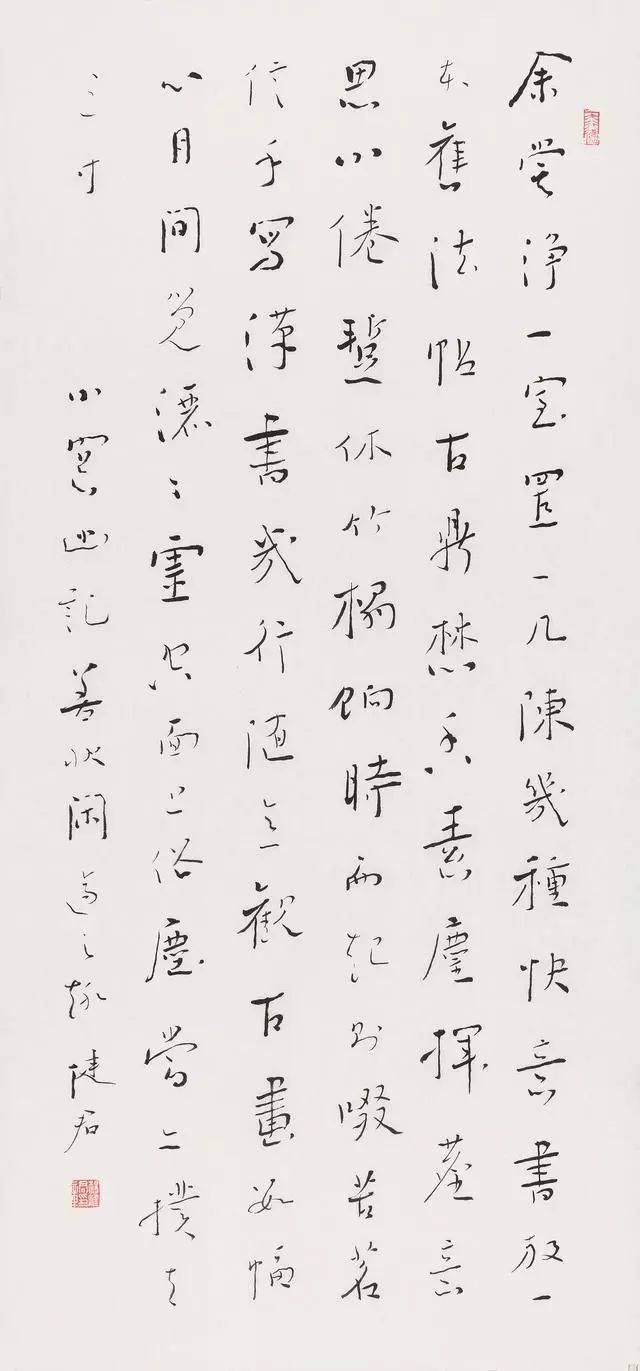 余嘗淨一室置一几陳幾種快意書放一
本舊法帖古鼎焚香素麈揮塵意
思小倦暫休竹榻餉時而起則啜苦茗
信手寫漢書幾行隨意觀古畫數幅
心目間覺灑〻靈空面上俗塵當亦撲去
三寸
小窻幽記善狀閑適之趣